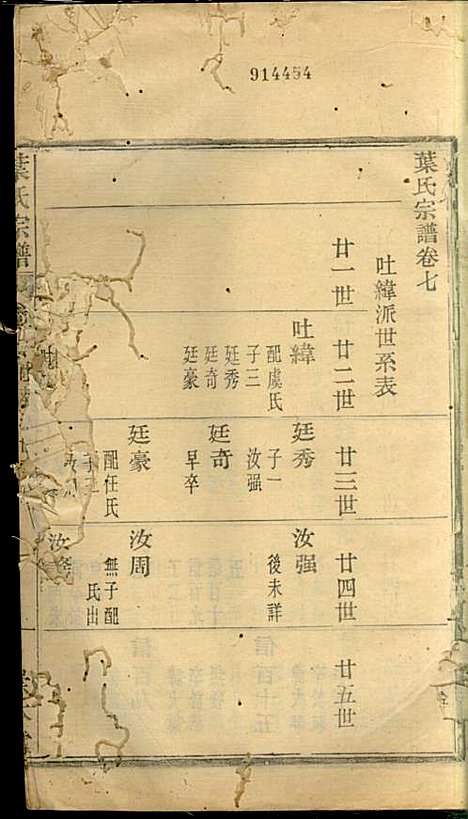 914454
葉氏宗譜卷七
吐緯派世系表
廿一世
廿二世
廿三世
廿四世
廿五世
吐緯
配虞氏
子三
廷秀
廷奇
廷豪
廷秀
子一
汝强
廷奇
早卒
廷豪
配任氏
子二
汝周
汝强
後未詳
汝周
無子配
氏出
汝
葉氏宗譜